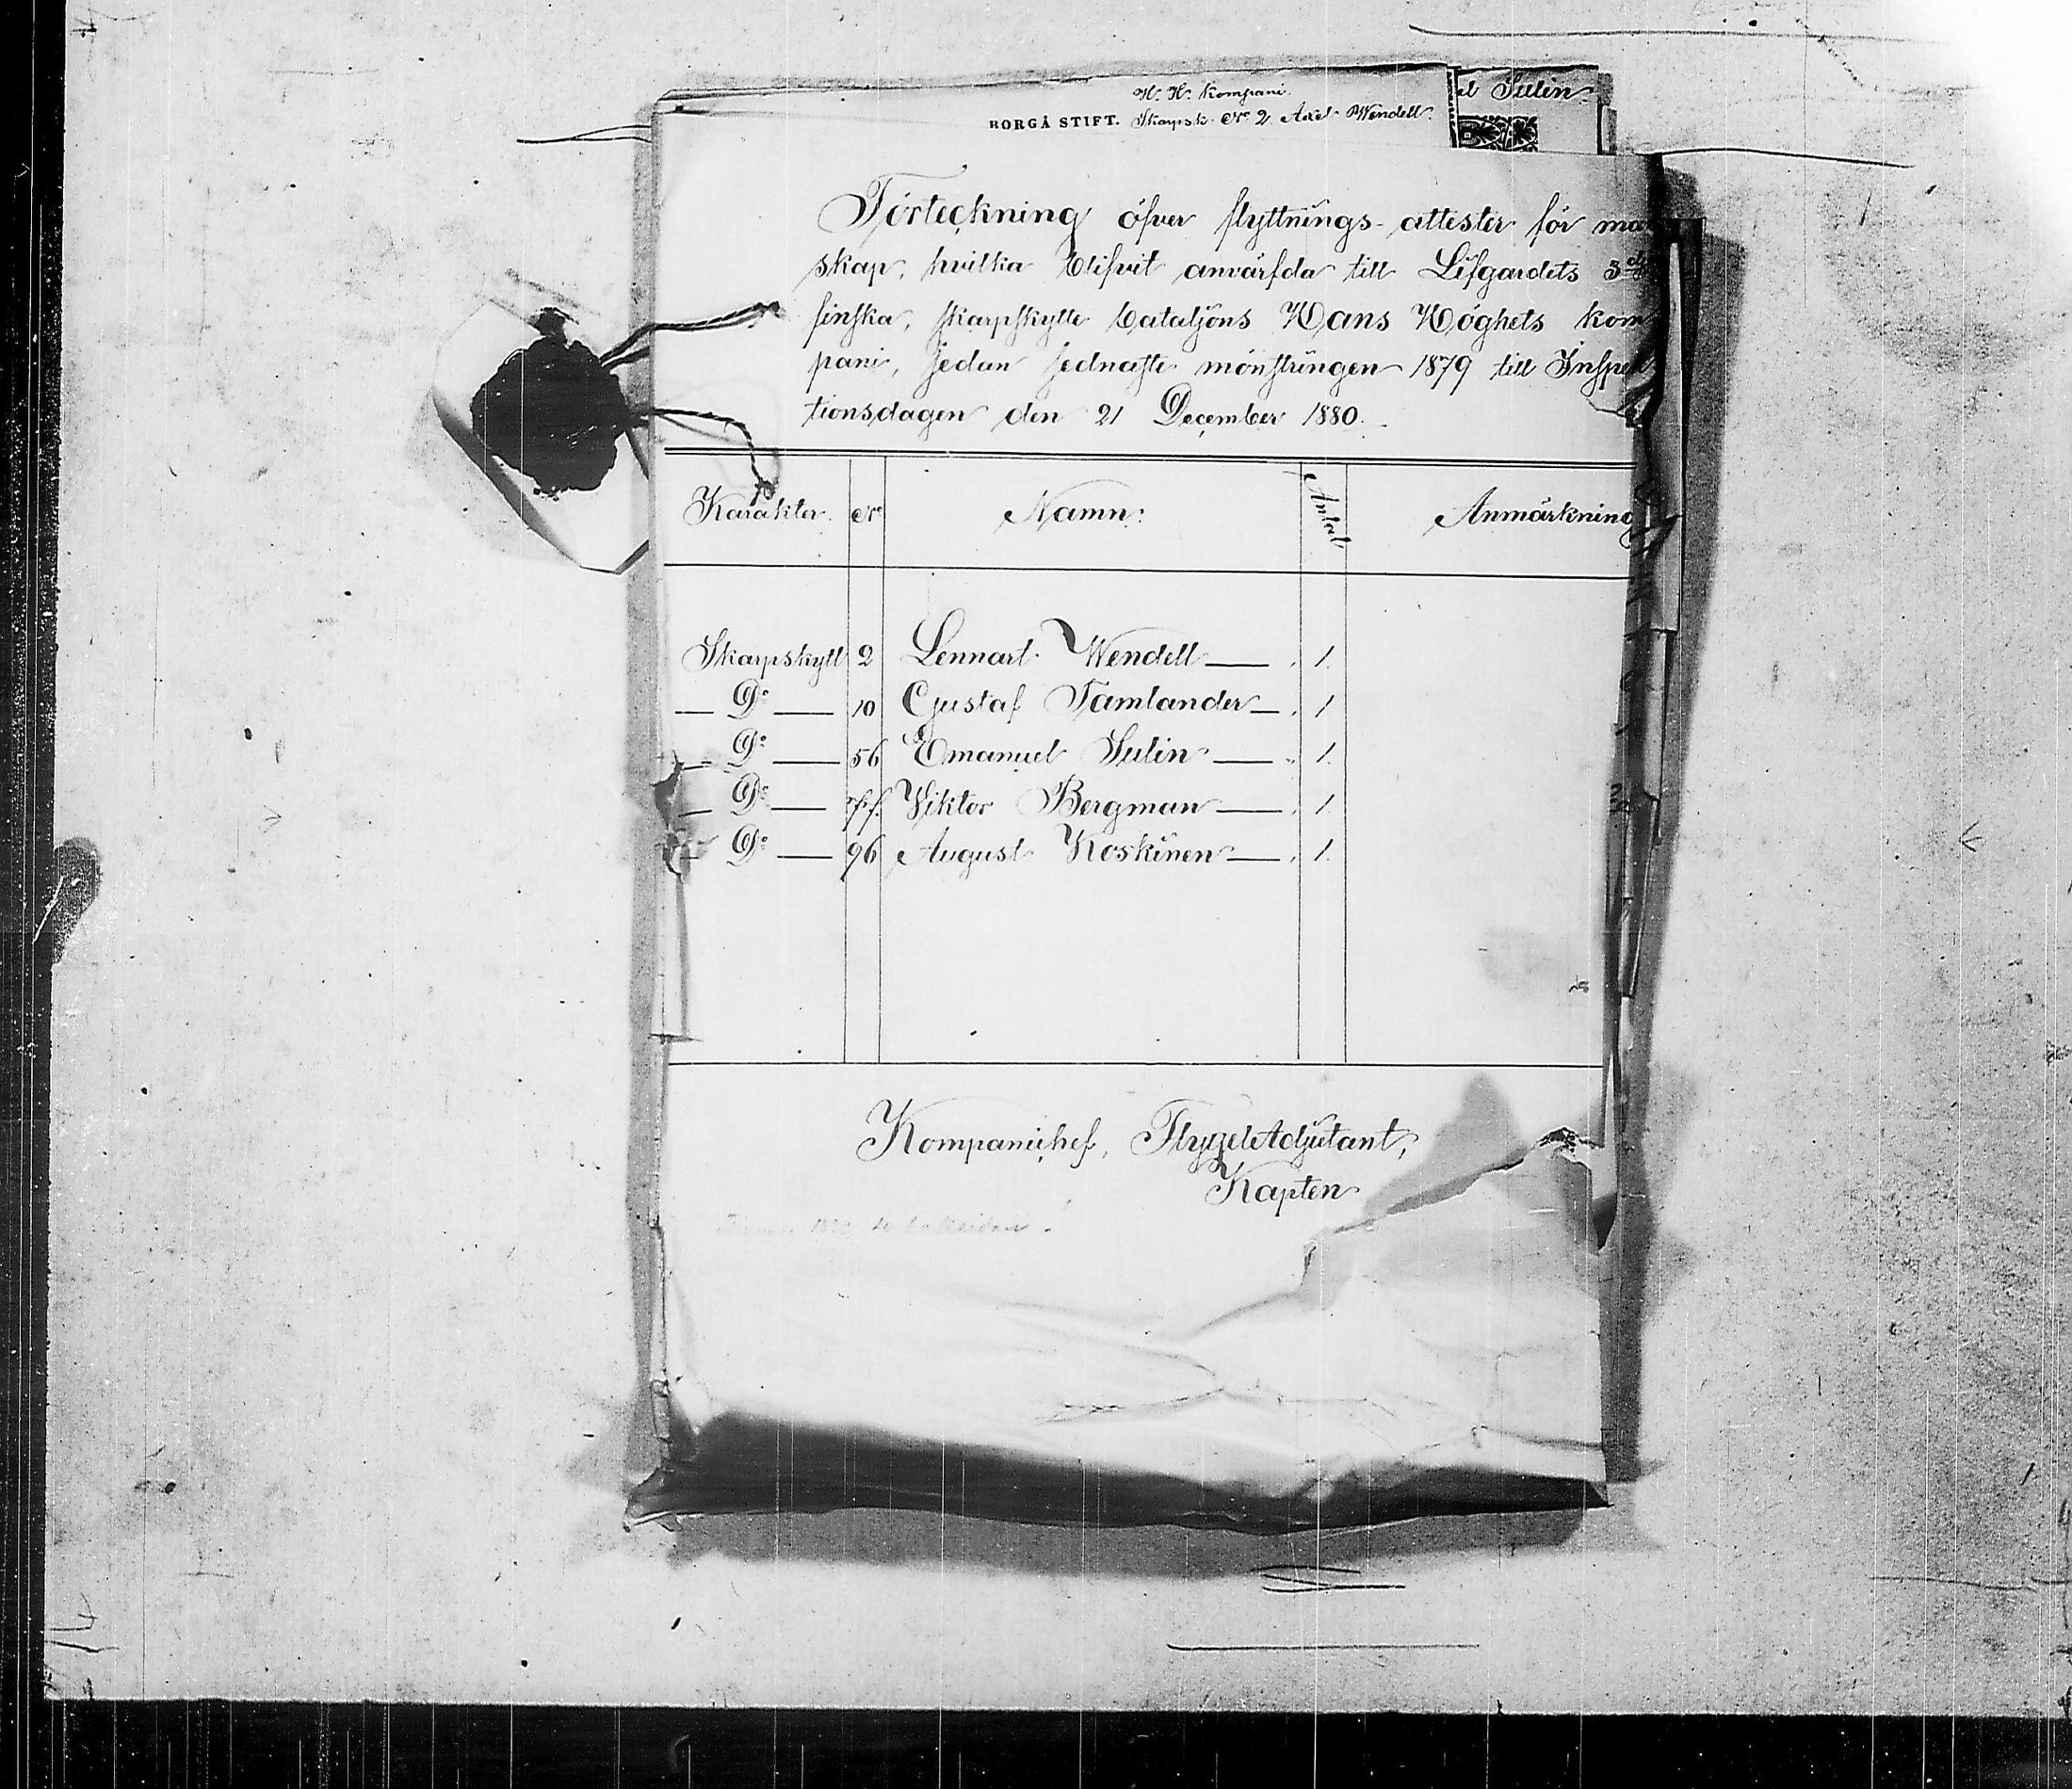 H. H. Kompani.
el Sulin.
BORGÅ STIFT. Skarpsk. No 2. Axel Wendell.
Förteckning öfver flyttnings-attester för ma
skap, hvilka blifvit anvärfda till Lifgardets 3dje
finska, skarpskytte bataljons Hans Höghets kom
pani, sedan sednaste mönstringen 1879 till Inspek
tionsdagen den 21 December 1880.
Karakter. No Namn: Antal Anmärkning
Skarpskytt 2 Lennart Wendell — . 1.
— Do — 10 Gustaf Tamlander — . 1
— Do — 56 Emanuel Sulin — . 1.
— Do — 77. Viktor Bergman — . 1.
— Do — 96 August Koskinen — . 1.
Kompanichef, FlygelAdjutant,
Kapten